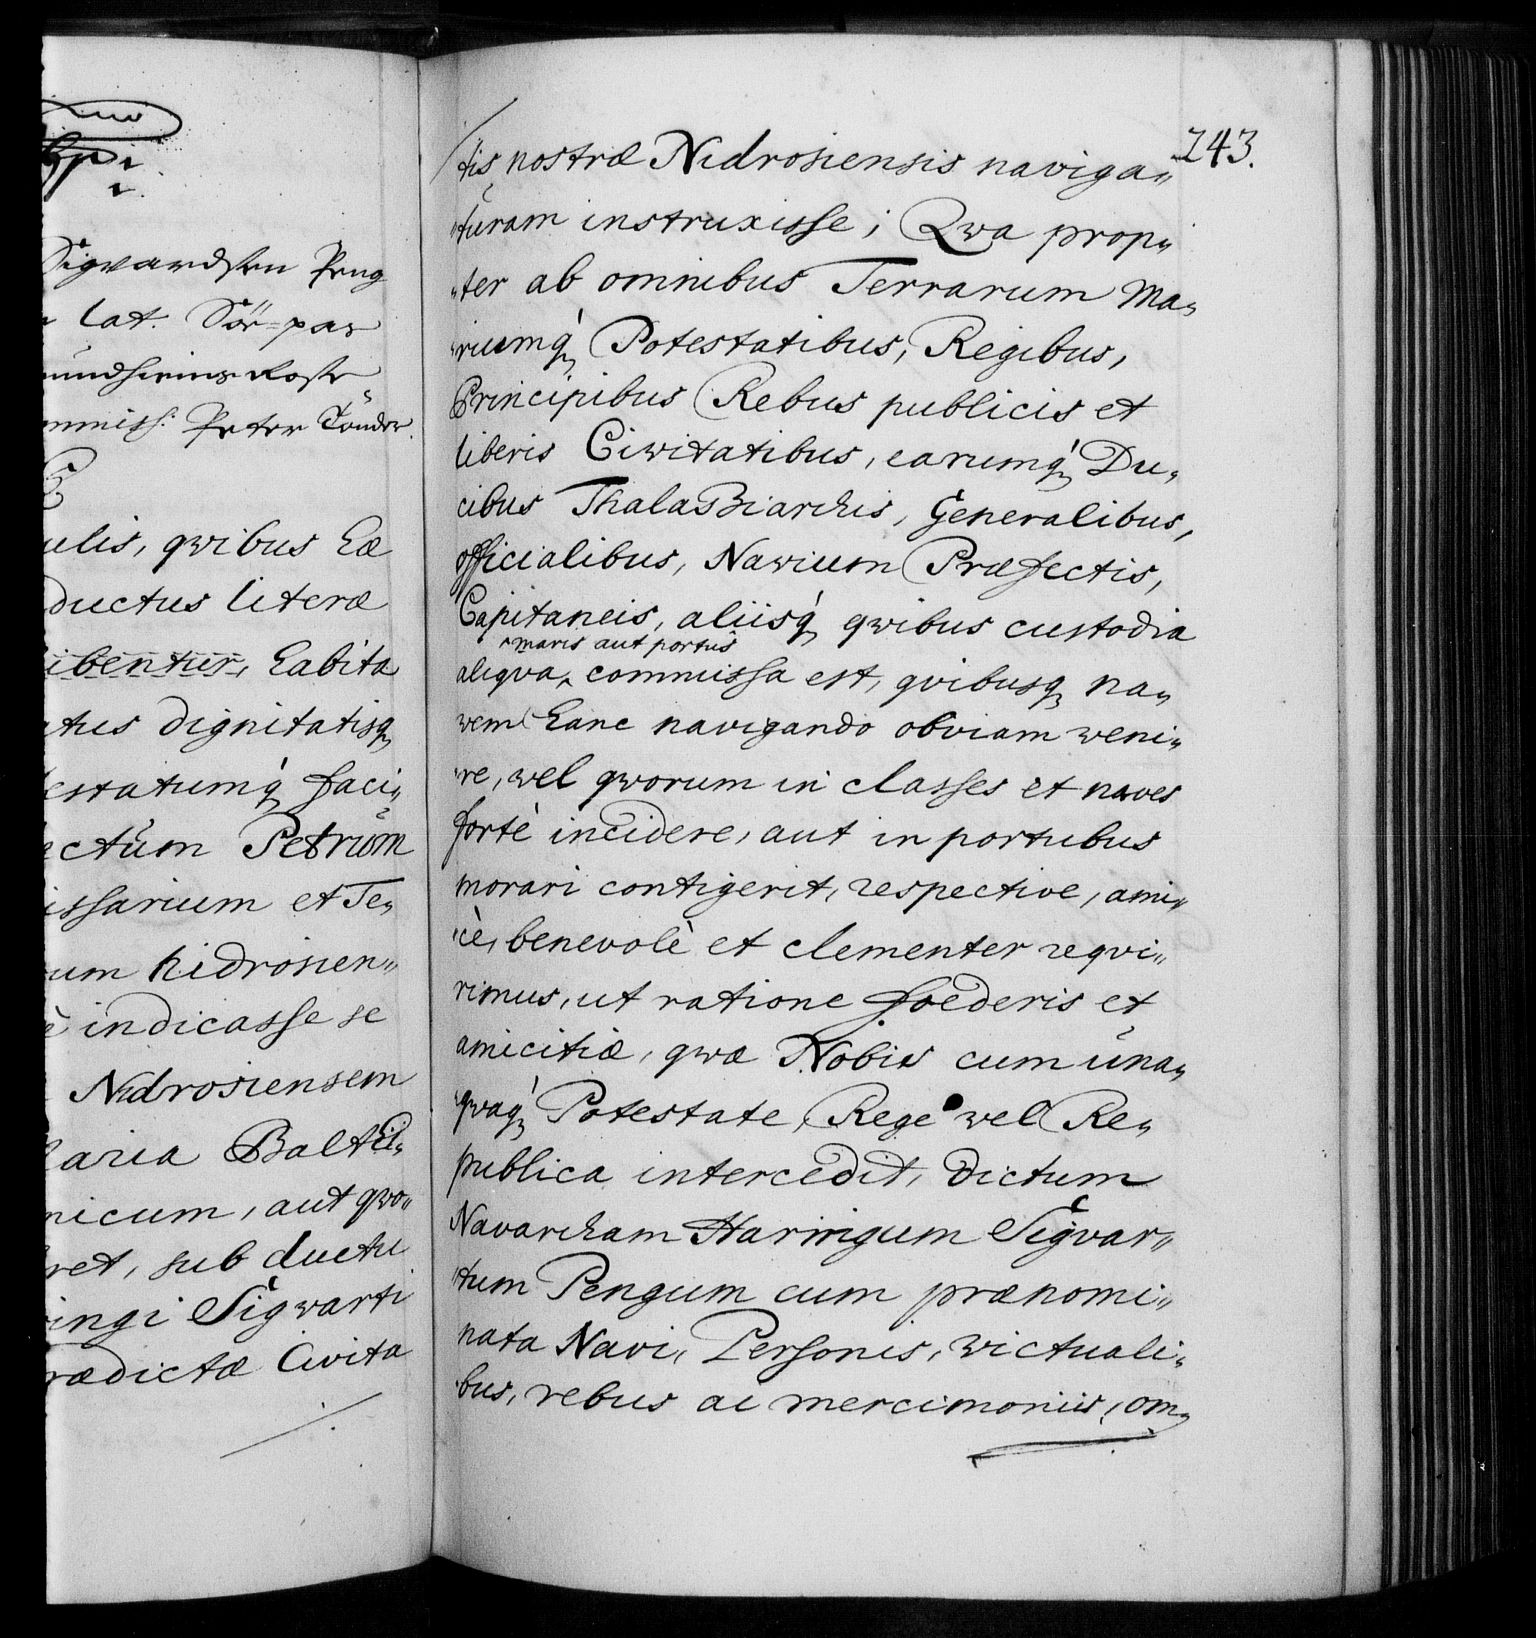 Sigvardsen Peng
lat. Sör-pas
mmiss: Peter Tønder
ulis, qvibus hæ
ductus literæ
ibentur, habita
tus dignitatisq
estatumq́ faci„
ectum Petrum
issarium et Te„
um hidrosien„
è indicasse se
Nidrosiensem
aria Balthi„
nicum, aut qvo„
ret, sub ductu
ingi Sigwarti
rædictæ Civita
243.
tis nostræ Nidrosiensis naviga„
„turam instruxisse; Qwa prop„
„ter ab omnibus Terrarum Ma„
„riumq́ Potestatibus, Regibus,
Principibus Rebus publicis et
liberis Civitatibus, earumq́ Du„
cibus Thalassiarchis, Generalibus,
officialibus, Nawium Præfectis,
Capitaneis, aliisq́ qvibus custodia
maris aut portus
aliqva, commissa est, qvibusq na„
wem hanc navigando obviam weni„
„re, wel qvorum in classes et naves
fortè incidere, aut in portubus
morari contigerit, respective, ami„
„cè, benevolè et clementer reqvi„
rimus, ut ratione foederis et
amicitiæ, qwæ Nobis cum una„
„qvaq́ Potestate, Rege wel Re„
publica intercedit, dictum
Navarcham Harringum Sigvar„
„tum Pengum cum prænomi„
nata Navi, Personis, wictuali„
„bus, rebus ac mercimoniis, om„